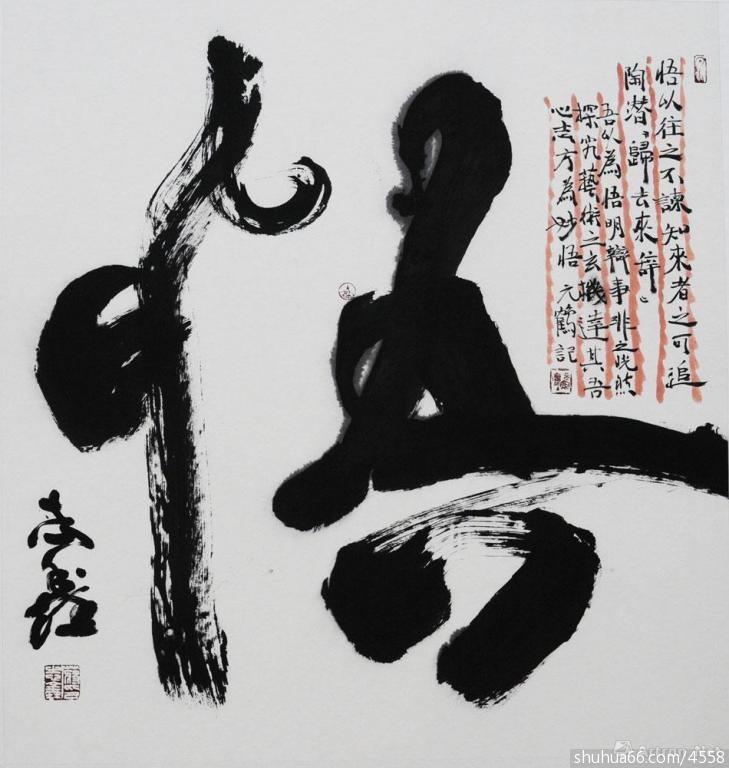 悟
悟以往之不諫知來者之可追
陶潜、歸去來辞、
吾以為悟明辯事非之晓然
探究藝術之玄機達其吾
心志方為妙悟 元鶴記
shuhua66.com/4558